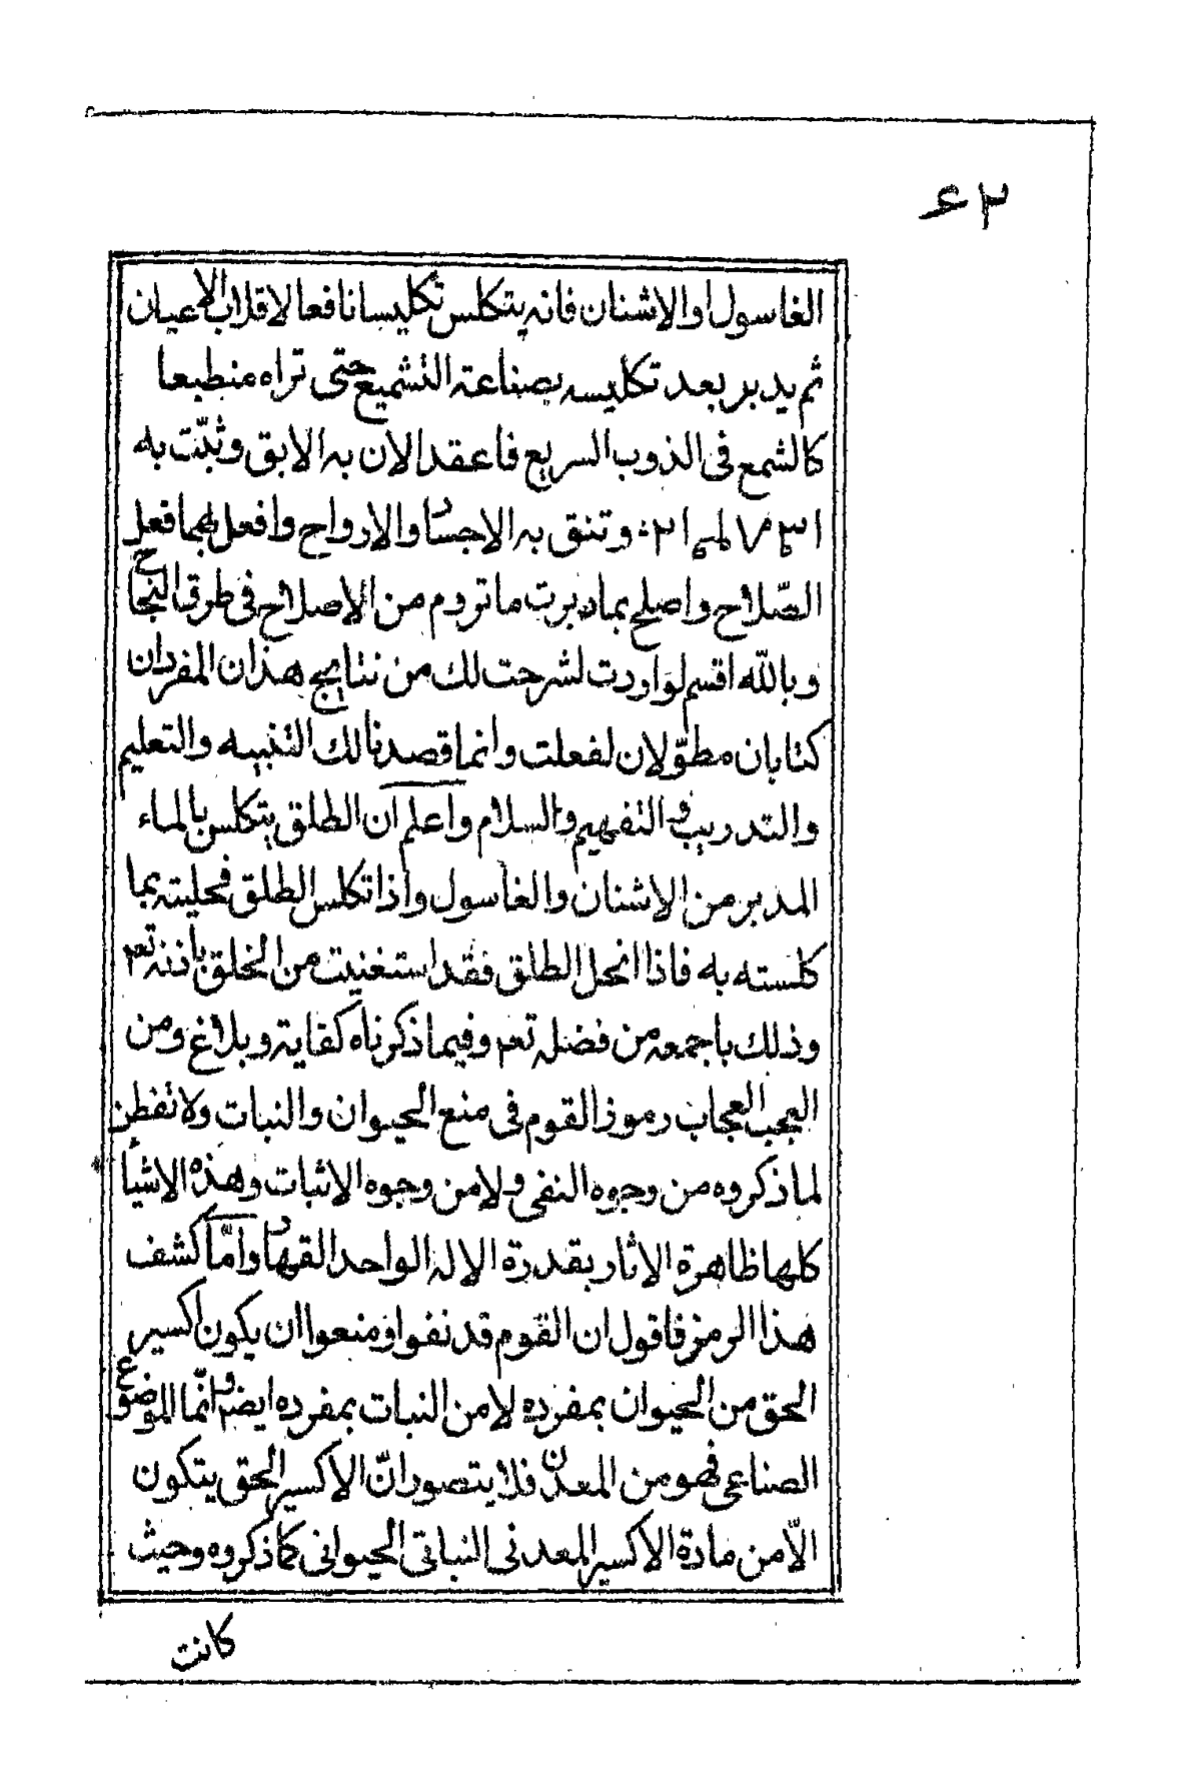 ٢٤
الغاسول او الاشنان فانه يتكلس تكليسا نافعا لاقلاب الاعيان
ثم يدبر بعد تكليسه بصناعة التشميع حتى تراه منطبعا
كالشمع فى الذوب السريع فاعقد الان به الابق وثبّت به
وتنقى به الاجساد والارواح وافعل بهما فعل
الصّلاح واصلح بما دبرت ما تروم من الاصلاح فى طرق النجاح
وبالله اقسم لو اردت لشرحت لك من نتايج هذان المفردان
كتابان مطوّلان لفعلت وانما قصدنا لك التنبيه والتعليم
والتدريب والتفهيم والسلام واعلم ان الطلق يتكلس بالماء
المدبر من الاشنان والغاسول واذا تكلس الطلق فحليته بما
كلسته به فاذا انحل الطلق فقد استغنيت من الخلق باذنه تع
وذلك باجمعه من فضله تع وفيما ذكرناه كفاية وبلاغ ومن
العجب العجاب رموز القوم فى منع الحيوان والنبات ولا تفطن
لما ذكروه من وجوه النفى ولا من وجوه الاثبات وهذه الاشيأ
كلها ظاهرة الاثار بقدرة الاله الواحد القهار وامّا كشف
هذا الرمز فاقول ان القوم قد نفوا ومنعوا ان يكون اكسير
الحق من الحيوان بمفرده لا من النبات بمفرده ايضا وانّما الموضوع
الصناعى فهو من المعدن فلا يتصور انّ الاكسير الحق يتكون
الّا من مادة الاكسير المعدنى النباتى الحيوانى كما ذكروه وحيث
كانت